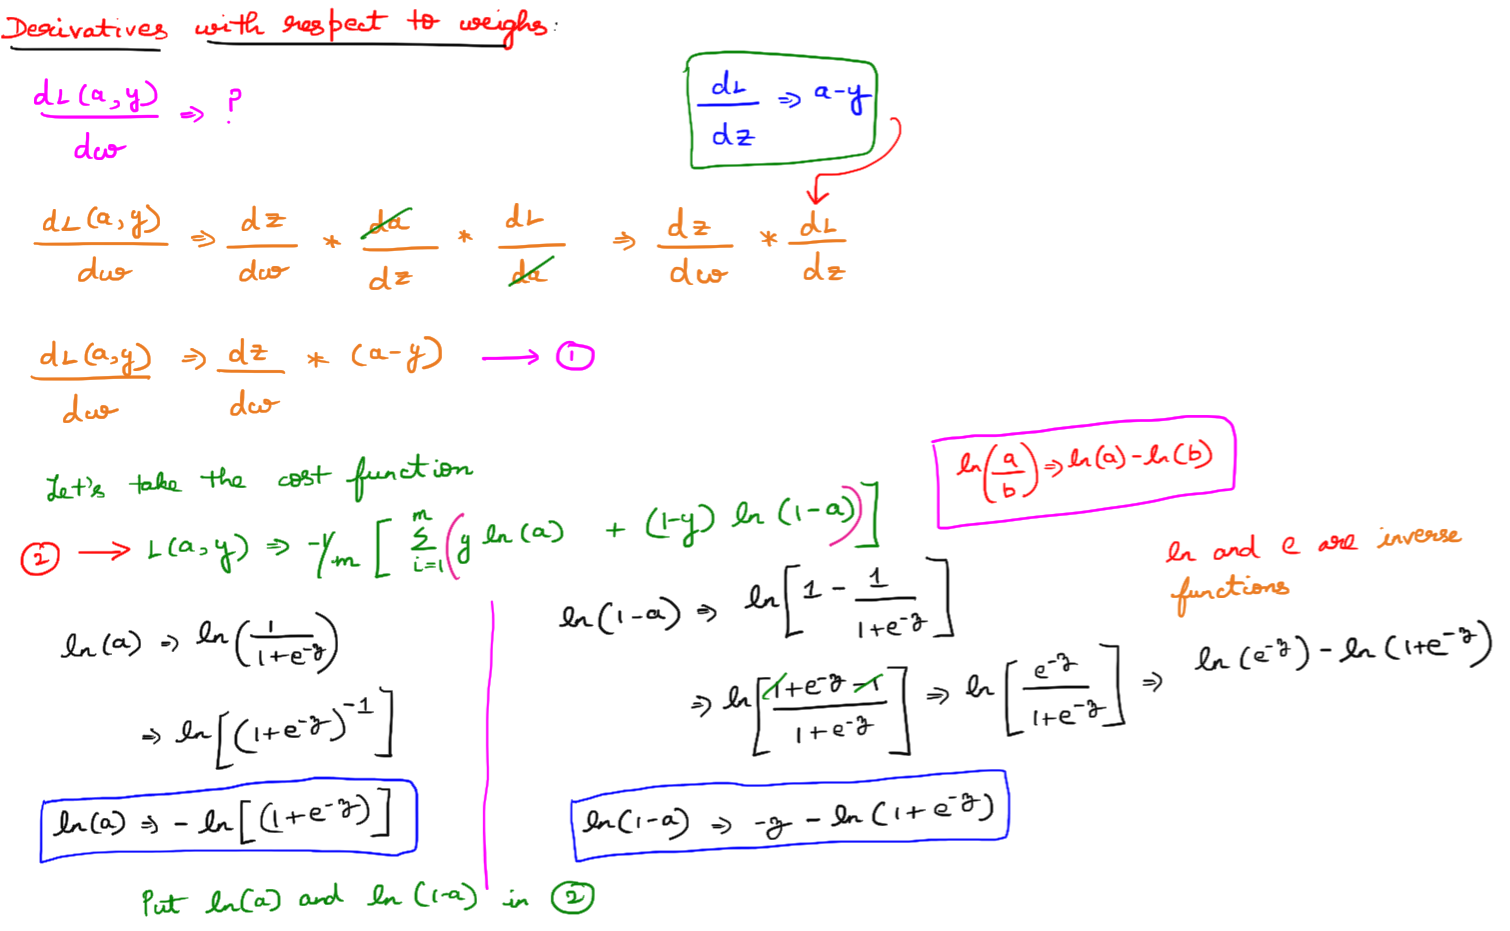 Derivatives with respect to weighs:
dL(a,y)/dw ⇒ ?
dL/dz ⇒ a-y
dL(a,y)/dw ⇒ dz/dw * da/dz * dL/da ⇒ dz/dw * dL/dz
dL(a,y)/dw ⇒ dz/dw * (a-y) ⟶ ①
Let's take the cost function
ln(a/b) ⇒ ln(a) - ln(b)
② ⟶ L(a,y) ⇒ -1/m [ Σ_{i=1}^{m} (y ln(a) + (1-y) ln (1-a)) ]
ln and e are inverse
functions
ln(a) ⇒ ln(1/(1+e^{-z}))
⇒ ln[(1+e^{-z})^{-1}]
ln(a) ⇒ - ln[(1+e^{-z})]
ln(1-a) ⇒ ln[1 - 1/(1+e^{-z})]
⇒ ln[(1+e^{-z}-1)/(1+e^{-z})] ⇒ ln[e^{-z}/(1+e^{-z})] ⇒ ln(e^{-z}) - ln(1+e^{-z})
ln(1-a) ⇒ -z - ln(1+e^{-z})
Put ln(a) and ln(1-a) in ②